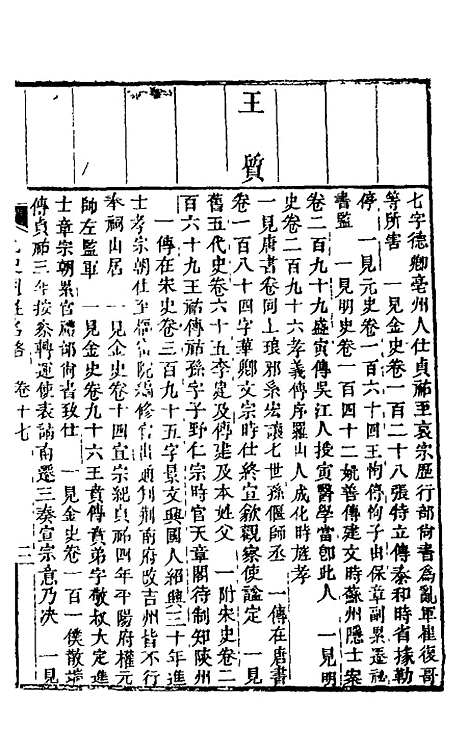 七字德卿亳州人仕貞祐至哀宗歷行部尚書為亂軍崔復哥
等所害　一見金史卷一百二十八張特立傳泰和時省掾勒
停　一見元史卷一百六十四王恂傳恂子由保章副累遷祕
書監　一見明史卷一百四十二姚善傳建文時蘇州隱士案
卷二百九十九盛寅傳吳江人授寅醫學當卽此人　一見明
史卷二百九十六孝義傳序羅山人成化時旌孝
王質
一見唐書卷同上琅邪系宏讓七世孫偃師丞　一傳在唐書
卷一百八十四字華卿文宗時仕終宣歙觀察使謚定　一見
舊五代史卷六十五李建及傳建及本姓父　一附宋史卷二
百六十九王祐傳祐孫字子野仁宗時官天章閣待制知陝州
一傳在宋史卷三百九十五字景文興國人紹興三十年進
士孝宗朝仕至樞密院編修官出通判荆南府改吉州皆不行
奉祠山居　一見金史卷十四宣宗紀貞祐四年平陽府權元
帥左監軍　一見金史卷九十六王賁傳賁弟字敬叔大定進
士章宗朝累官禮部尚書致仕　一見金史卷一百一僕散端
傳貞祐三年按察轉運使表請南遷三奏宣宗意乃决　一見
九史同姓名略　卷十七　三